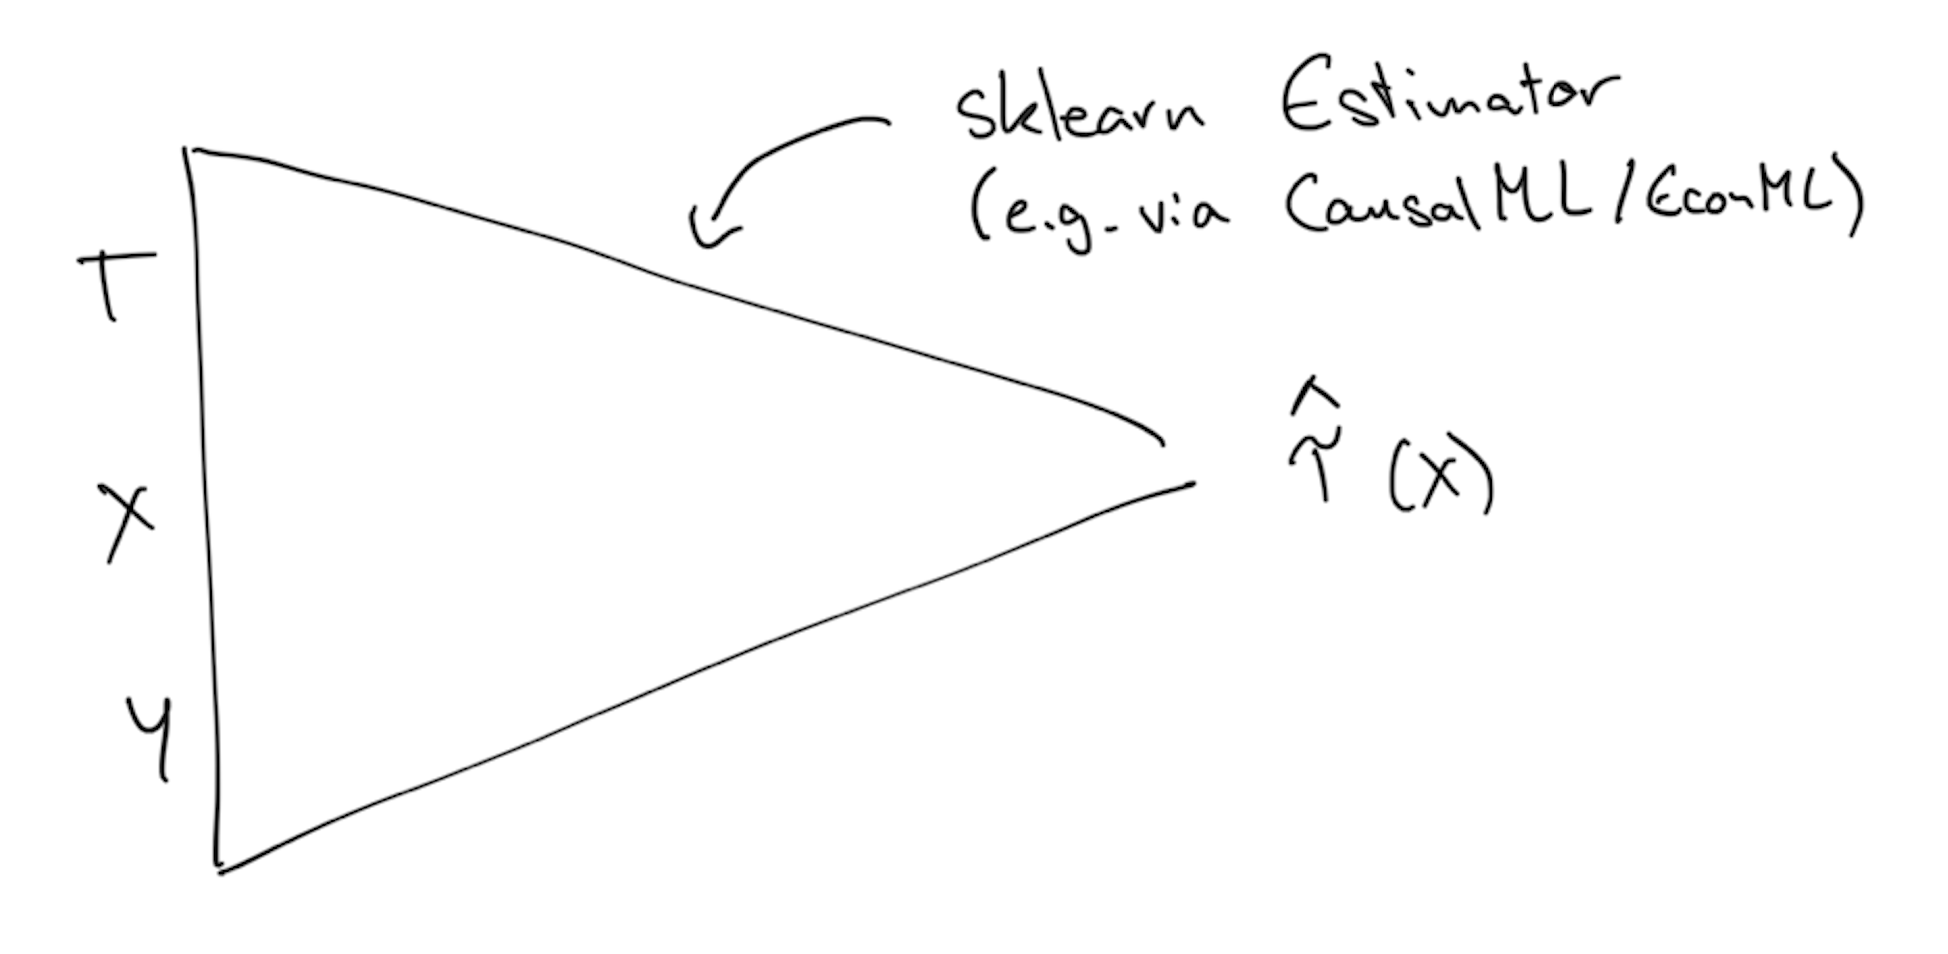 sklearn Estimator
(e.g. via CausalML/EconML)
T
X
τ̂ (X)
Y